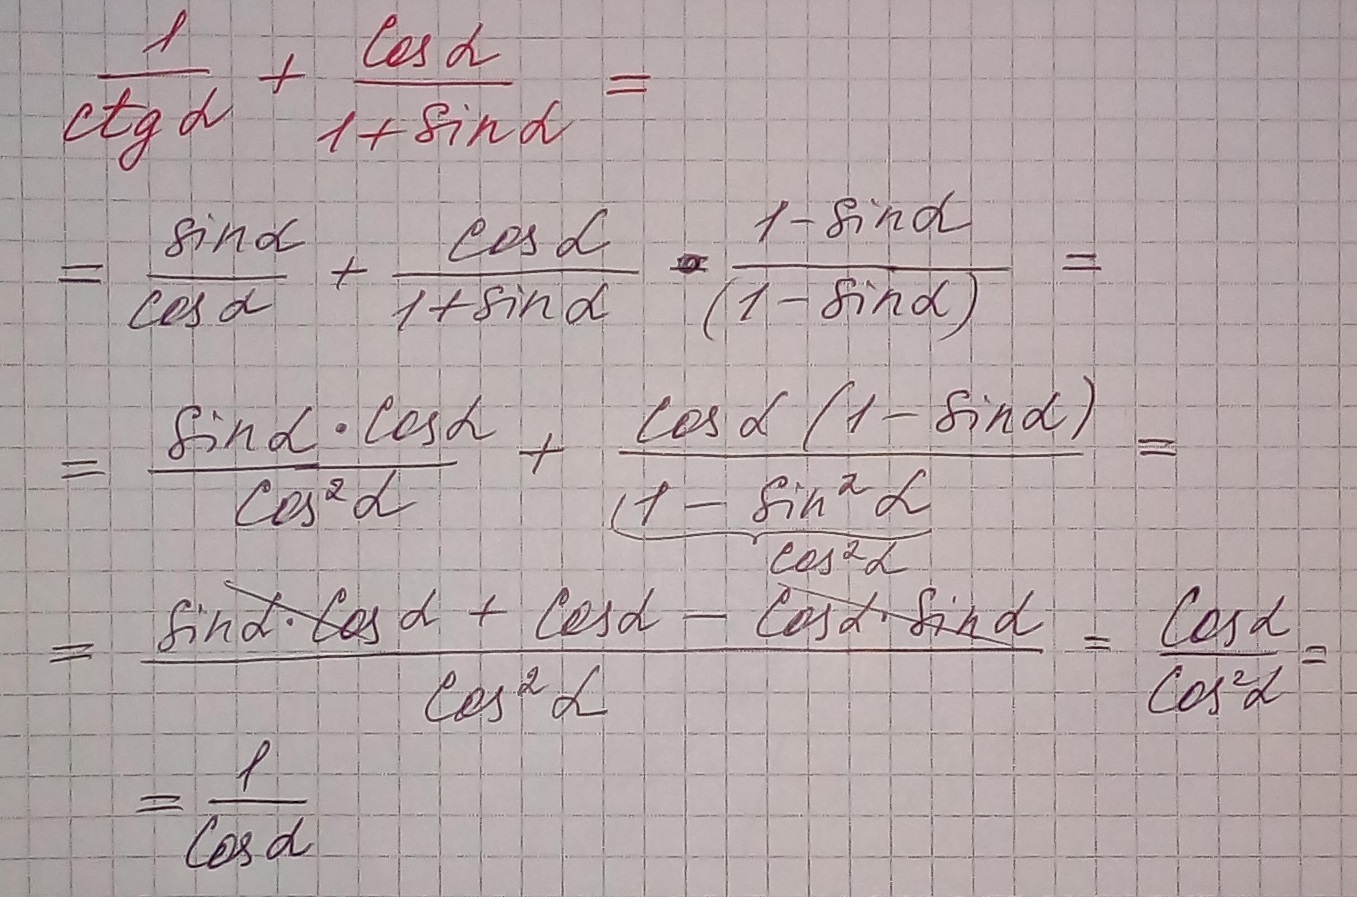 1/ctg α + cos α/(1+sin α) =
= sin α/cos α + cos α/(1+sin α) · 1-sin α/((1-sin α)) =
= sin α·cos α/cos² α + cos α (1-sin α)/(1-sin² α =
cos² α
= sin α·cos α + cos α - cos α·sin α/cos² α = cos α/cos² α =
= 1/cos α